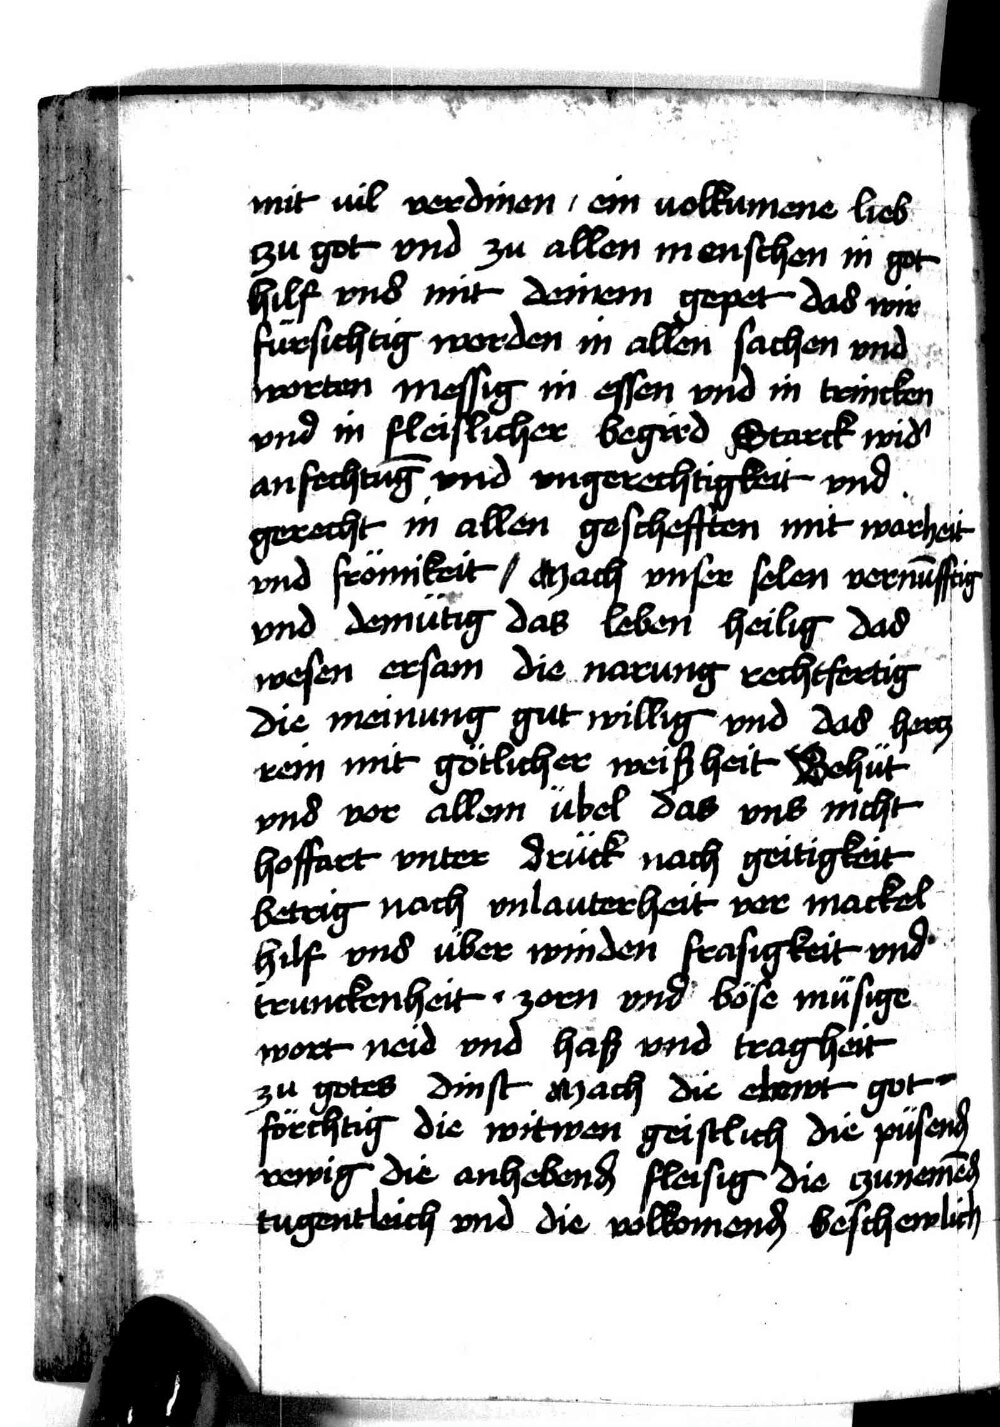 mit uil verdinen / ein uolkumene lieb
czu got vnd zu allen menschen in got
hilf vns mit deinem gepet das wir
fürsichtig werden in allen sachen vnd
worten messig in essen vnd in trincken
vnd in fleislicher begird Starck wid'
anfechtūg vnd vngerechtigkeit vnd
gerecht in allen gescheften mit warheit
vnd frömikeit / Mach vnser selen vernūfftig
vnd demütig das leben heilig das
wesen ersam die narung rechtfertig
die meinung gut willig vnd das hercz
rein mit götlicher weißheit Behüt
vns vor allem übel das vns nicht
hoffart vnter drück noch geitigkeit
betrig noch vnlauterheit ver mackel
hilf vns über winden frasigkeit vnd
trunckenheit · zorn vnd böse müsige
wort neid vnd haß vnd tragheit
zu gotes dinst Mach die got-
förchtig die witwen geistlich die püsend
rewig die anhebend fleisig die czunemēd
tugentleich vnd die volkomend beschewlich